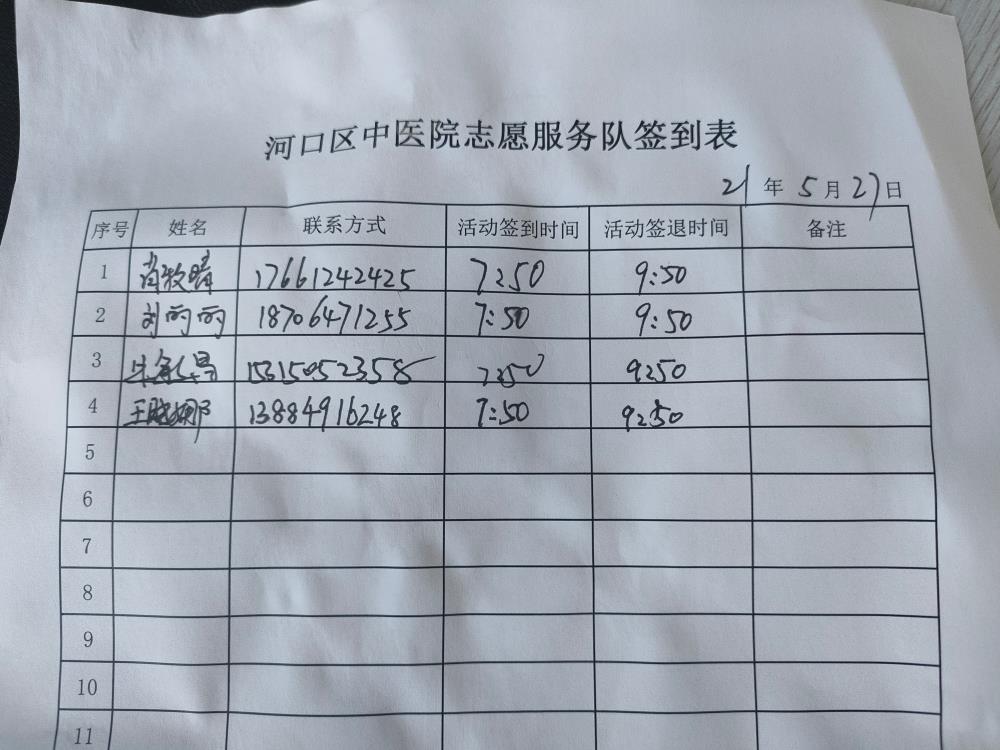 河口区中医院志愿服务队签到表
21年5月27日
序号 姓名 联系方式 活动签到时间 活动签退时间 备注
1 肖牧晴 17661242425 7:50 9:50
2 刘丽丽 18706471255 7:50 9:50
3 15315052358 7:50 9:50
4 王晓娜 13884916248 7:50 9:50
5
6
7
8
9
10
11